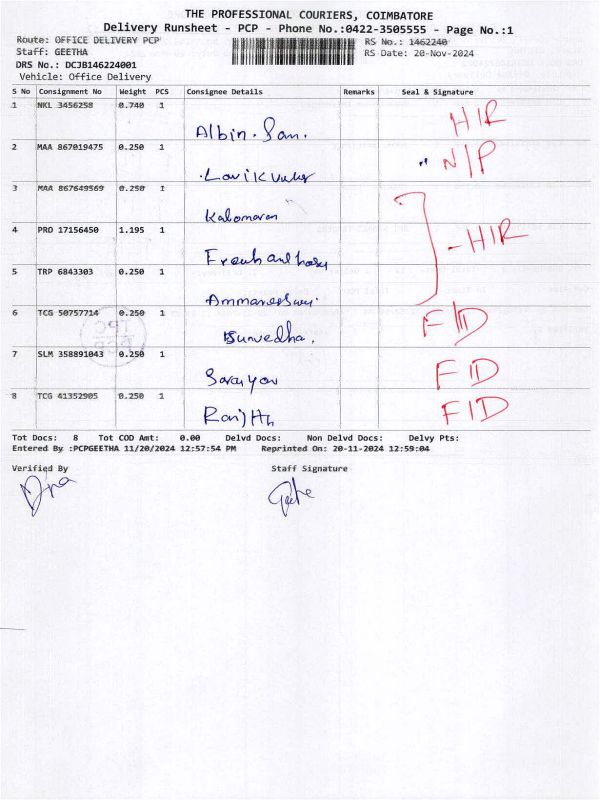 THE PROFESSIONAL COURIERS, COIMBATORE
Delivery Runsheet - PCP - Phone No.:0422-3505555 - Page No.:1
Route: OFFICE DELIVERY PCP RS No.: 1462240
Staff: GEETHA RS Date: 20-Nov-2024
DRS No.: DCJB146224001
Vehicle: Office Delivery
S No Consignment No Weight PCS Consignee Details Remarks Seal & Signature
1 NKL 3456258 0.740 1 H/R
Albin. San.
2 MAA 867019475 0.250 1 N/P
3 MAA 867649569 0.250 1
4 PRO 17156450 1.195 1 - H/R
5 TRP 6843303 0.250 1
6 TCG 50757714 0.250 1 F/D
7 SLM 358891043 0.250 1 F/D
8 TCG 41352905 0.250 1 F/D
Ranjith
Tot Docs: 8 Tot COD Amt: 0.00 Delvd Docs: Non Delvd Docs: Delvy Pts:
Entered By :PCPGEETHA 11/20/2024 12:57:54 PM Reprinted On: 20-11-2024 12:59:04
Verified By Staff Signature